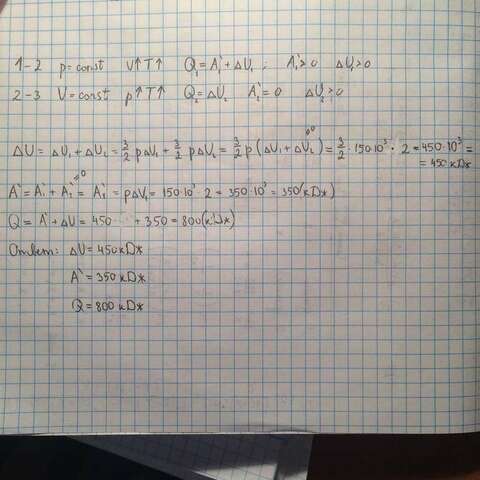 1-2 p=const V↑T↑ Q₁=A₁'+ΔU₁; A₁'>0 ΔU₁>0
2-3 V=const p↑T↑ Q₂=ΔU₂ A₂'=0 ΔU₂>0
ΔU = ΔU₁+ΔU₂ = 3/2 pΔV₁ + 3/2 pΔV₂ = 3/2 p(ΔV₁+ΔV₂) = 3/2 · 150·10³ · 2 = 450·10³ =
=0
= 450 кДж
A' = A₁' + A₁' = A₁' = pΔV₁ = 150·10³ · 2 = 350·10³ = 350(кДж)
=0
Q = A'+ΔU = 450 + 350 = 800(кДж)
Ответ: ΔU = 450 кДж
A' = 350 кДж
Q = 800 кДж